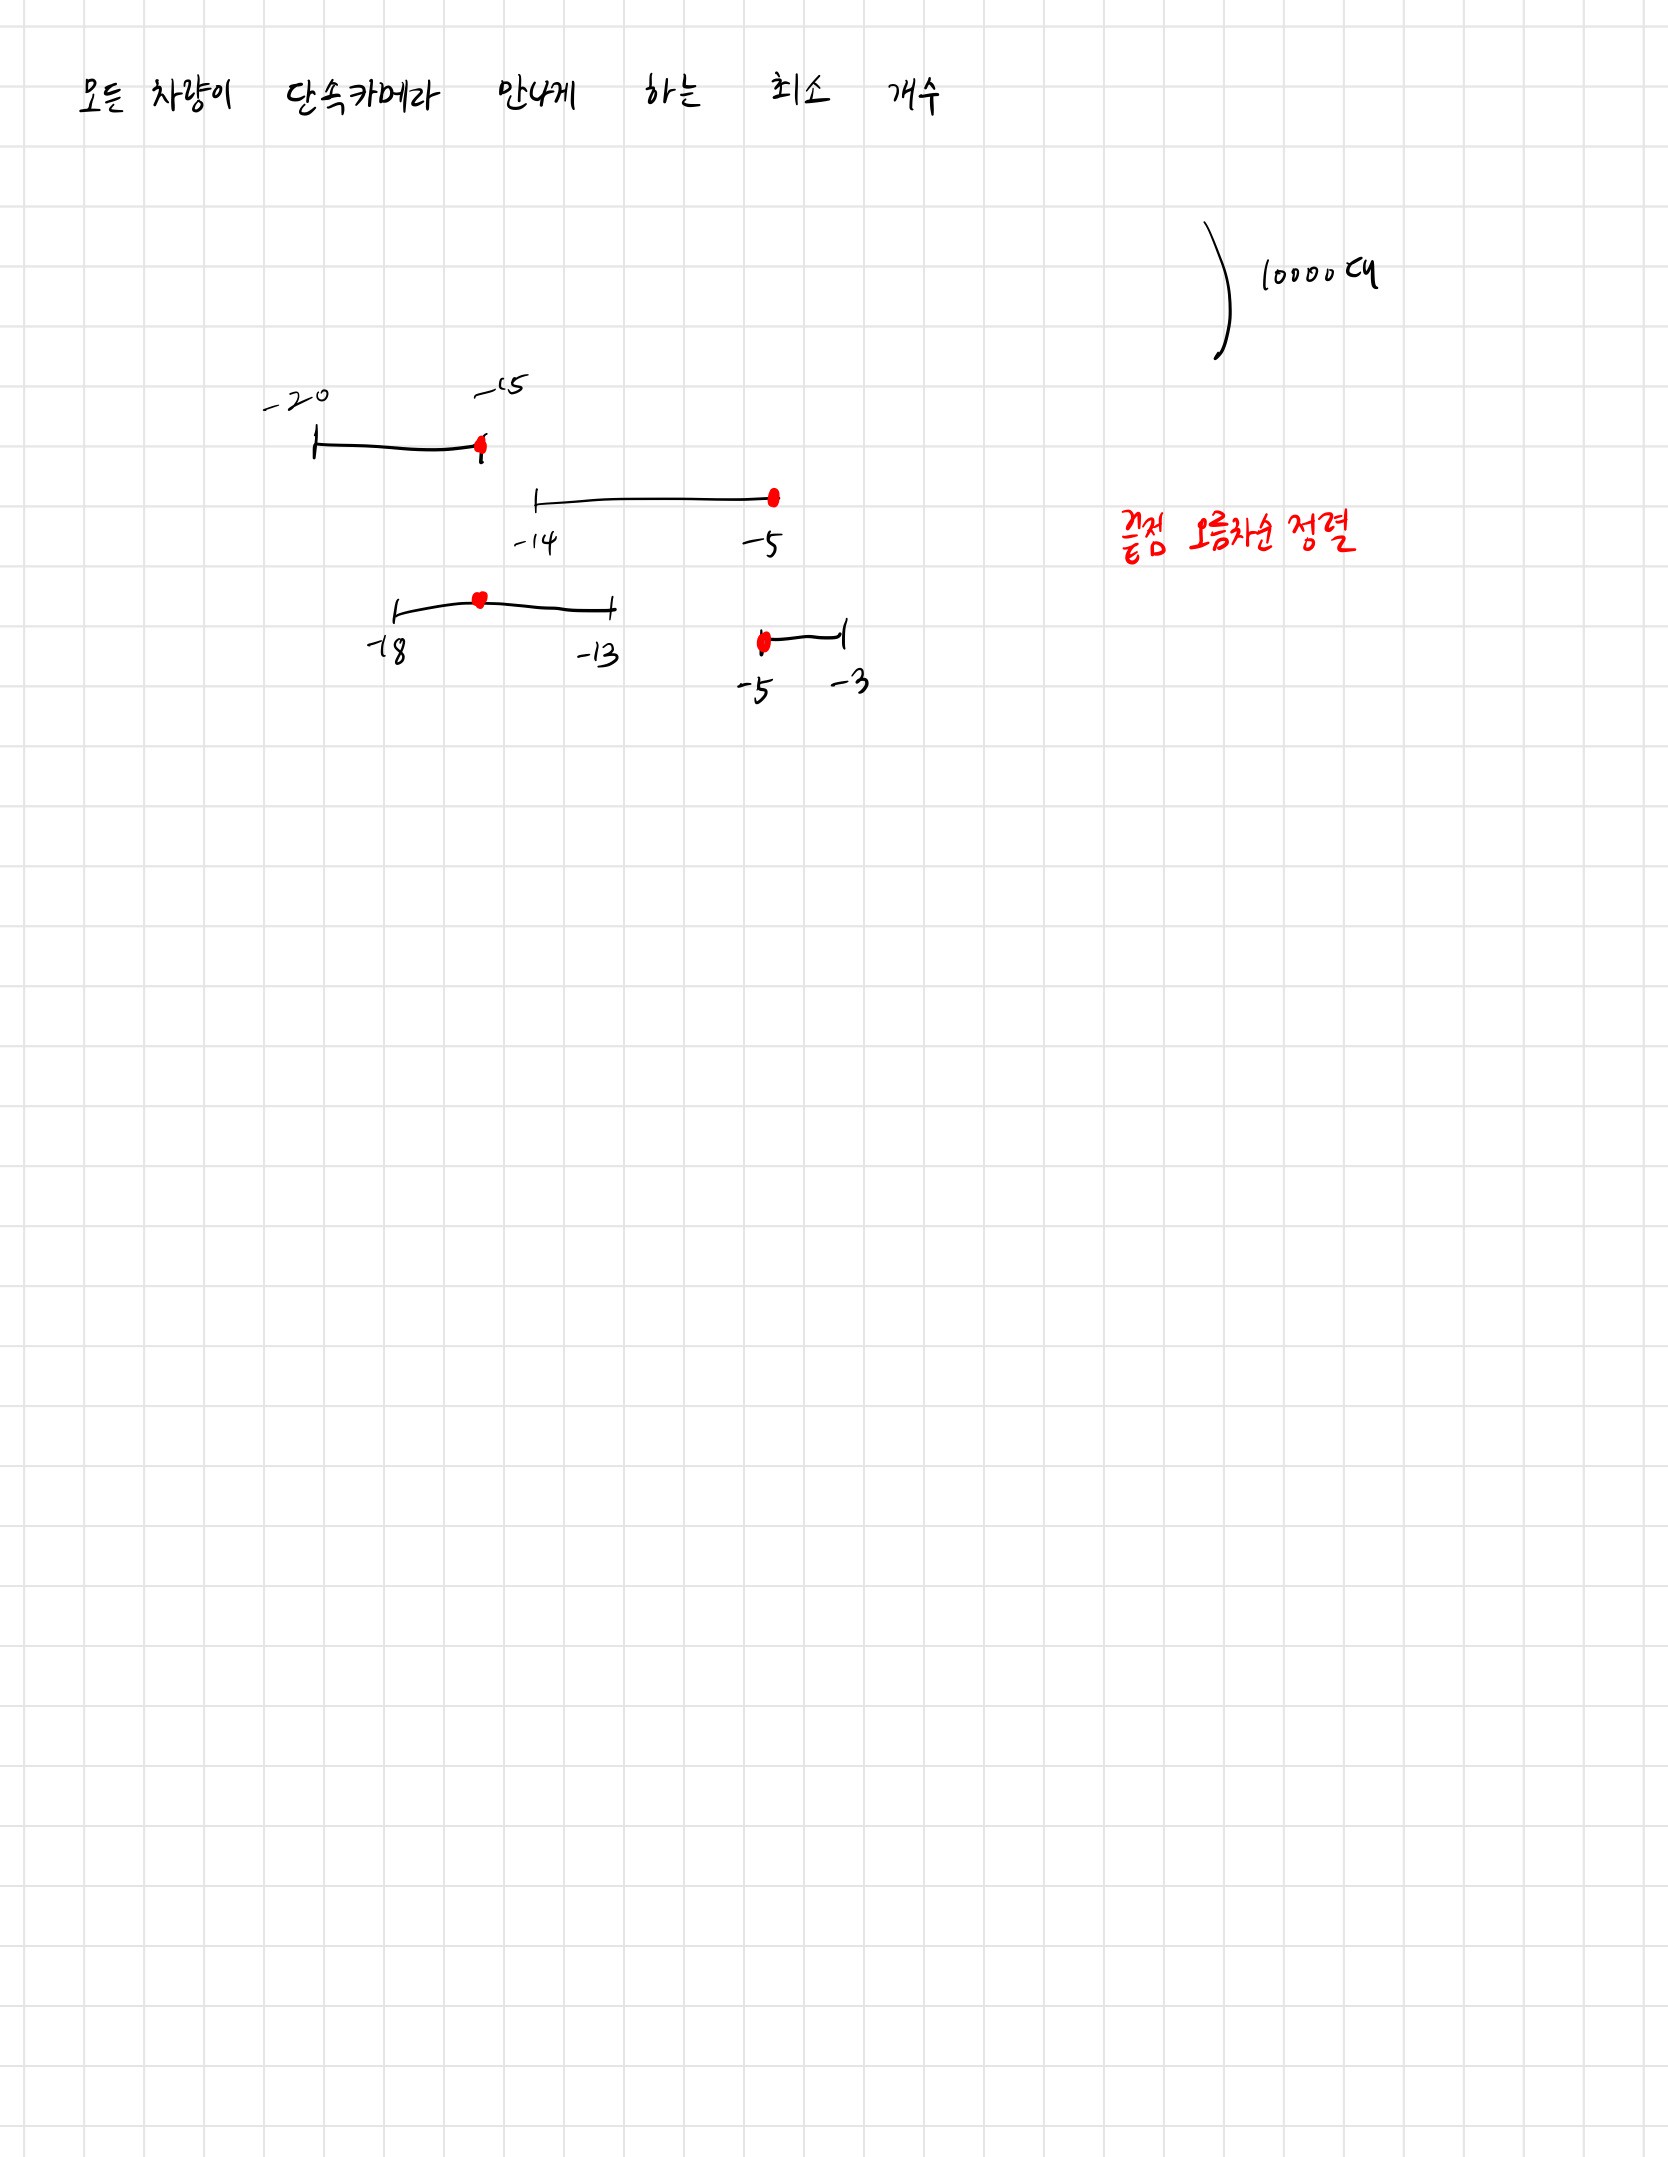 모든 차량이 단속카메라 만나게 하는 최소 개수
10000대
-20 -15
-14 -5
끝점 오름차순 정렬
-18 -13
-5 -3